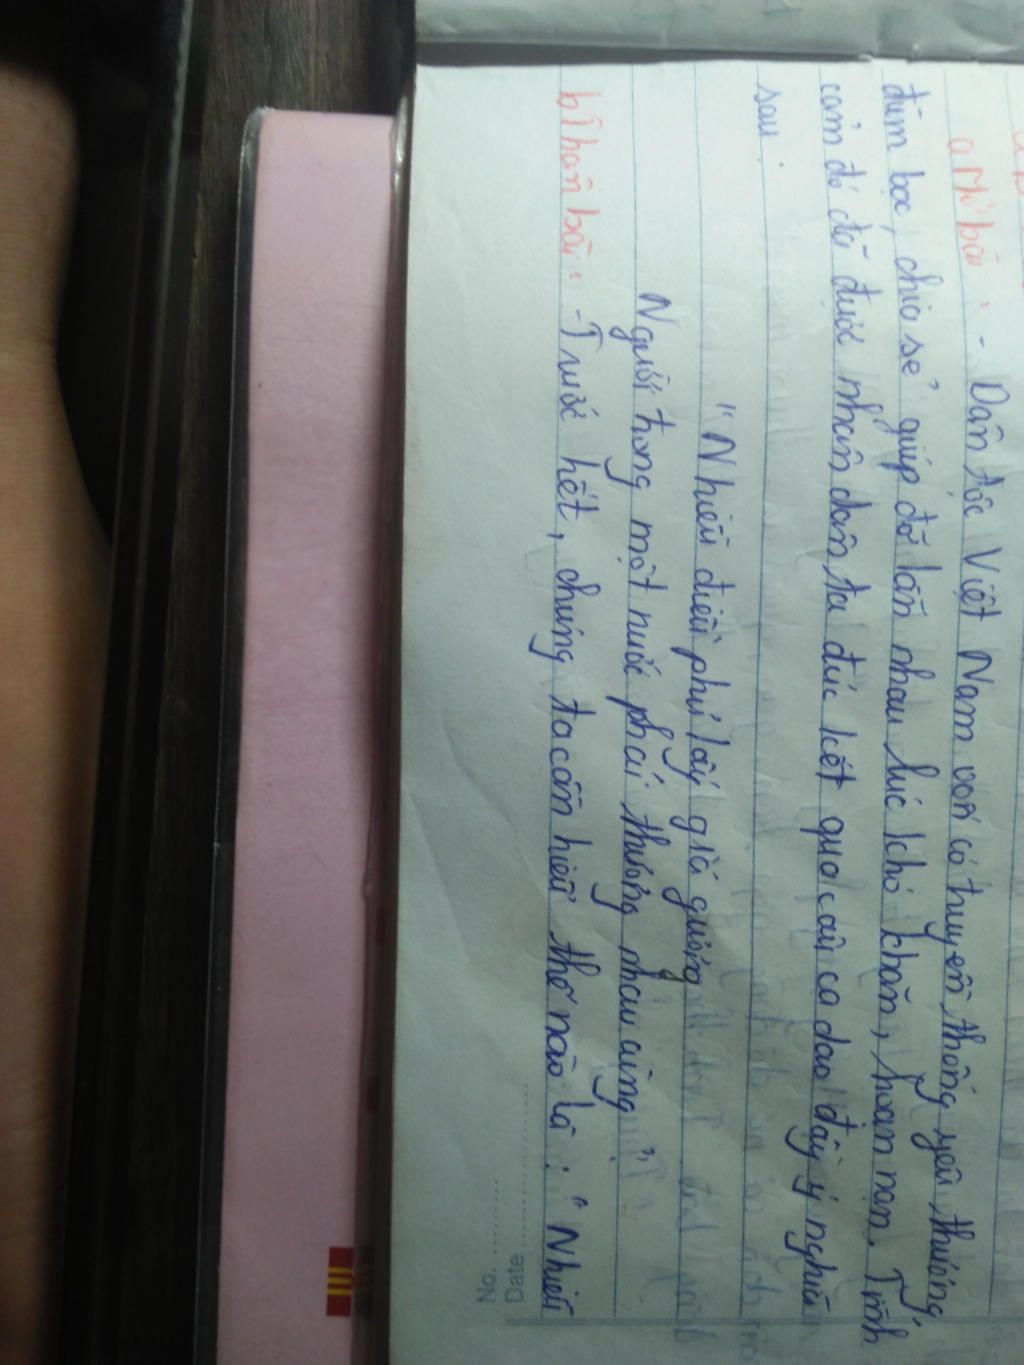 a Mở bài : - Dân tộc Việt Nam vốn có truyền thống yêu thương,
đùm bọc, chia sẻ giúp đỡ lẫn nhau lúc khó khăn, hoạn nạn. Tình
cảm đó đã được nhân dân ta đúc kết qua câu ca dao đầy ý nghĩa
sau :
" Nhiễu điều phủ lấy giá gương
Người trong một nước phải thương nhau cùng "
b Thân bài : - Trước hết, chúng ta cần hiểu thế nào là : " Nhiễu
No. ..........
Date ..........